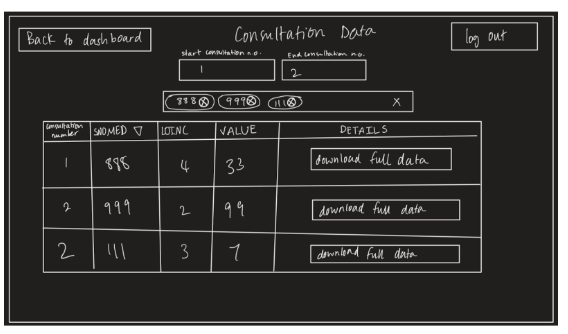 Back to dashboard
Consultation Data
log out
start consultation n.o.
End consultation n.o.
1
2
888 ⊗ 999 ⊗ 111 ⊗ X
consultation number SNOMED ▽ LOINC VALUE DETAILS
1 888 4 33 download full data
2 999 2 99 download full data
2 111 3 7 download full data